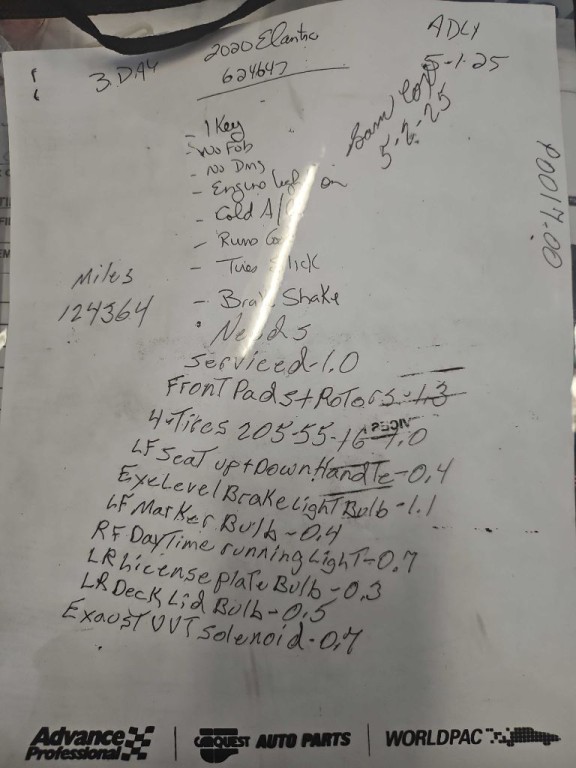 3.DAY
2020 Elantra
624647
ADLY
5-1-25
5-2-25
- 1 Key
- No Fob
- No Dmg
- Engine light on
- Cold A/C
- Runs Good
- Tires Slick
- Brake Shake
Miles
124364
• Needs
Serviced-1.0
Front Pads + Rotors-1.3
4-Tires 205-55-16-1.0
LF Seat up+Down Handle-0.4
Eye Level Brake Light Bulb-1.1
LF Marker Bulb-0.4
RF DayTime running Light-0.7
LR License plate Bulb-0.3
LR Deck Lid Bulb-0.5
Exaust VVT Solenoid-0.7
Advance Professional
CARQUEST AUTO PARTS
WORLDPAC